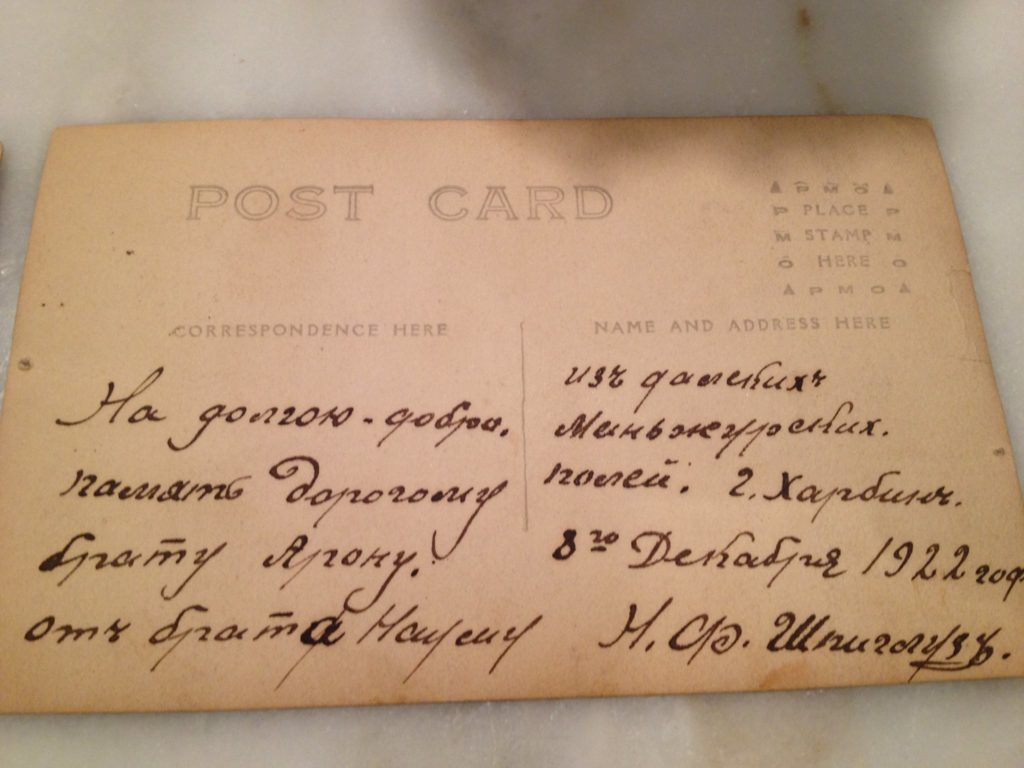 POST CARD
A P M O A
P PLACE P
M STAMP M
O HERE O
A P M O A
CORRESPONDENCE HERE
NAME AND ADDRESS HERE
На долгою-добро.
память Дорогому
брату Арону.
отъ брата Науму
изъ далекихъ
Маньжурских.
полей. г. Харбинъ.
8го Декабря 1922 год
Н. Ф. Шпиголузъ.